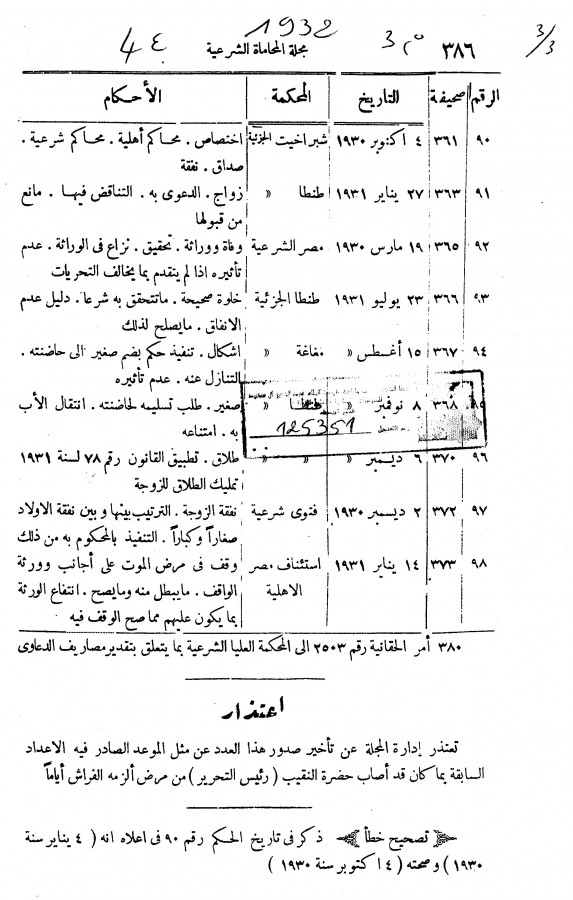 1932
٤ 4 مجلة المحاماة الشرعية ٣ ٣٨٦ ٣/٣
الرقم صحيفة التاريخ المحكمة الأحكام
٩٠ ٣٦١ ٤ اكتوبر ١٩٣٠ شبراخيت الجزئية اختصاص . محاكم أهلية . محاكم شرعية .
صداق . نفقة
٩١ ٣٦٣ ٢٧ يناير ١٩٣١ طنطا » زواج . الدعوى به . التناقض فيها . مانع
من قبولها
٩٢ ٣٦٥ ١٩ مارس ١٩٣٠ مصر الشرعية وفاة ووراثة . تحقيق . نزاع فى الوراثة . عدم
تأثيره اذا لم يتقدم بما يخالف التحريات
٩٣ ٣٦٦ ٢٣ يوليو ١٩٣١ طنطا الجزئية خلوة صحيحة . ماتتحقق به شرعا . دليل عدم
الانفاق . مايصلح لذلك
٩٤ ٣٦٧ ١٥ أغسطس » مغاغة » اشكال . تنفيذ حكم بضم صغير الى حاضنته .
التنازل عنه . عدم تأثيره
٣٦٨ ٨ نوفمبر » » صغير . طلب تسليمه لحاضنته . انتقال الأب
125351 به . امتناعه
٩٦ ٣٧٠ ٦ ديسمبر » » » طلاق . تطبيق القانون رقم ٧٨ لسنة ١٩٣١
تمليك الطلاق للزوجة
٩٧ ٣٧٢ ٢ ديسمبر ١٩٣٠ فتوى شرعية نفقة الزوجة . الترتيب بينها وبين نفقة الاولاد
صغاراً وكباراً . التنفيذ بالمحكوم به من ذلك
٩٨ ٣٧٣ ١٤ يناير ١٩٣١ استئناف مصر وقف فى مرض الموت على أجانب وورثة
الاهلية الواقف . مايبطل منه ومايصح . انتفاع الورثة
بما يكون عليهم مما صح الوقف فيه
٣٨٠ أمر الحقانية رقم ٢٥٠٣ الى المحكمة العليا الشرعية بما يتعلق بتقدير مصاريف الدعاوى
اعتذار
تعتذر إدارة المجلة عن تأخير صدور هذا العدد عن مثل الموعد الصادر فيه الاعداد
السابقة بما كان قد أصاب حضرة النقيب ( رئيس التحرير ) من مرض ألزمه الفراش أياماً
تصحيح خطأ ذكر فى تاريخ الحكم رقم ٩٠ فى اعلاه انه ( ٤ يناير سنة
١٩٣٠ ) وصحته ( ٤ اكتوبر سنة ١٩٣٠ )